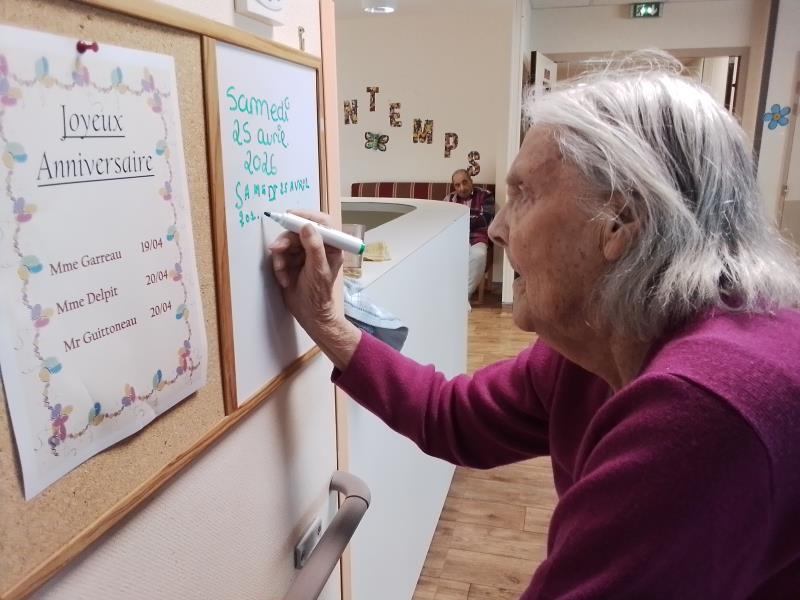 Joyeux
Anniversaire
Mme Garreau 19/04
Mme Delpit 20/04
Mr Guittoneau 20/04
Samedi
25 avril
2026
SAMEDI 25 AVRIL
202
NTEMPS